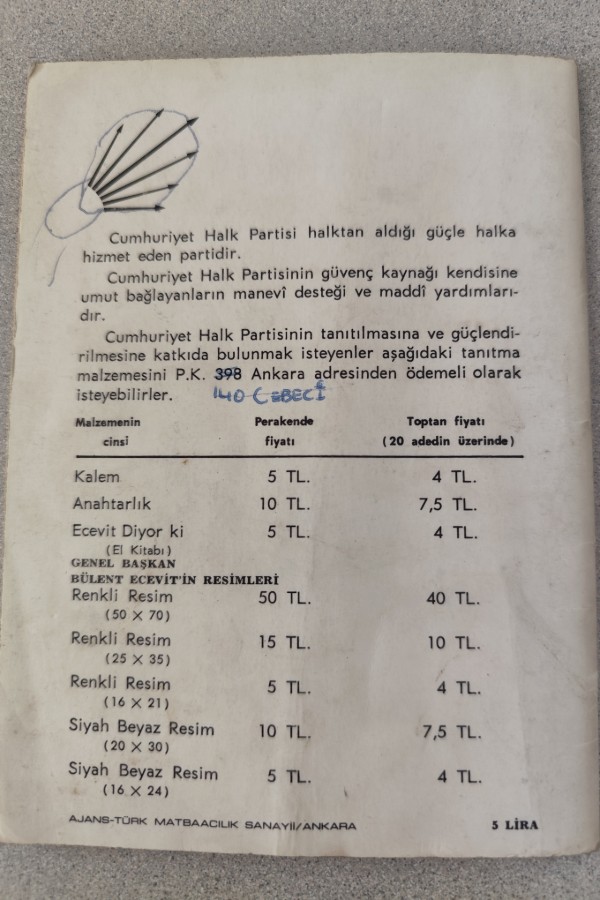 Cumhuriyet Halk Partisi halktan aldığı güçle halka
hizmet eden partidir.
Cumhuriyet Halk Partisinin güvenç kaynağı kendisine
umut bağlayanların manevî desteği ve maddî yardımları-
dır.
Cumhuriyet Halk Partisinin tanıtılmasına ve güçlendi-
rilmesine katkıda bulunmak isteyenler aşağıdaki tanıtma
malzemesini P.K. 398 Ankara adresinden ödemeli olarak
isteyebilirler. 140 CEBECİ
Malzemenin Perakende Toptan fiyatı
cinsi fiyatı (20 adedin üzerinde)
Kalem 5 TL. 4 TL.
Anahtarlık 10 TL. 7,5 TL.
Ecevit Diyor ki 5 TL. 4 TL.
(El Kitabı)
GENEL BAŞKAN
BÜLENT ECEVİT'İN RESİMLERİ
Renkli Resim 50 TL. 40 TL.
(50 X 70)
Renkli Resim 15 TL. 10 TL.
(25 X 35)
Renkli Resim 5 TL. 4 TL.
(16 X 21)
Siyah Beyaz Resim 10 TL. 7,5 TL.
(20 X 30)
Siyah Beyaz Resim 5 TL. 4 TL.
(16 X 24)
AJANS-TÜRK MATBAACILIK SANAYİİ/ANKARA 5 LİRA